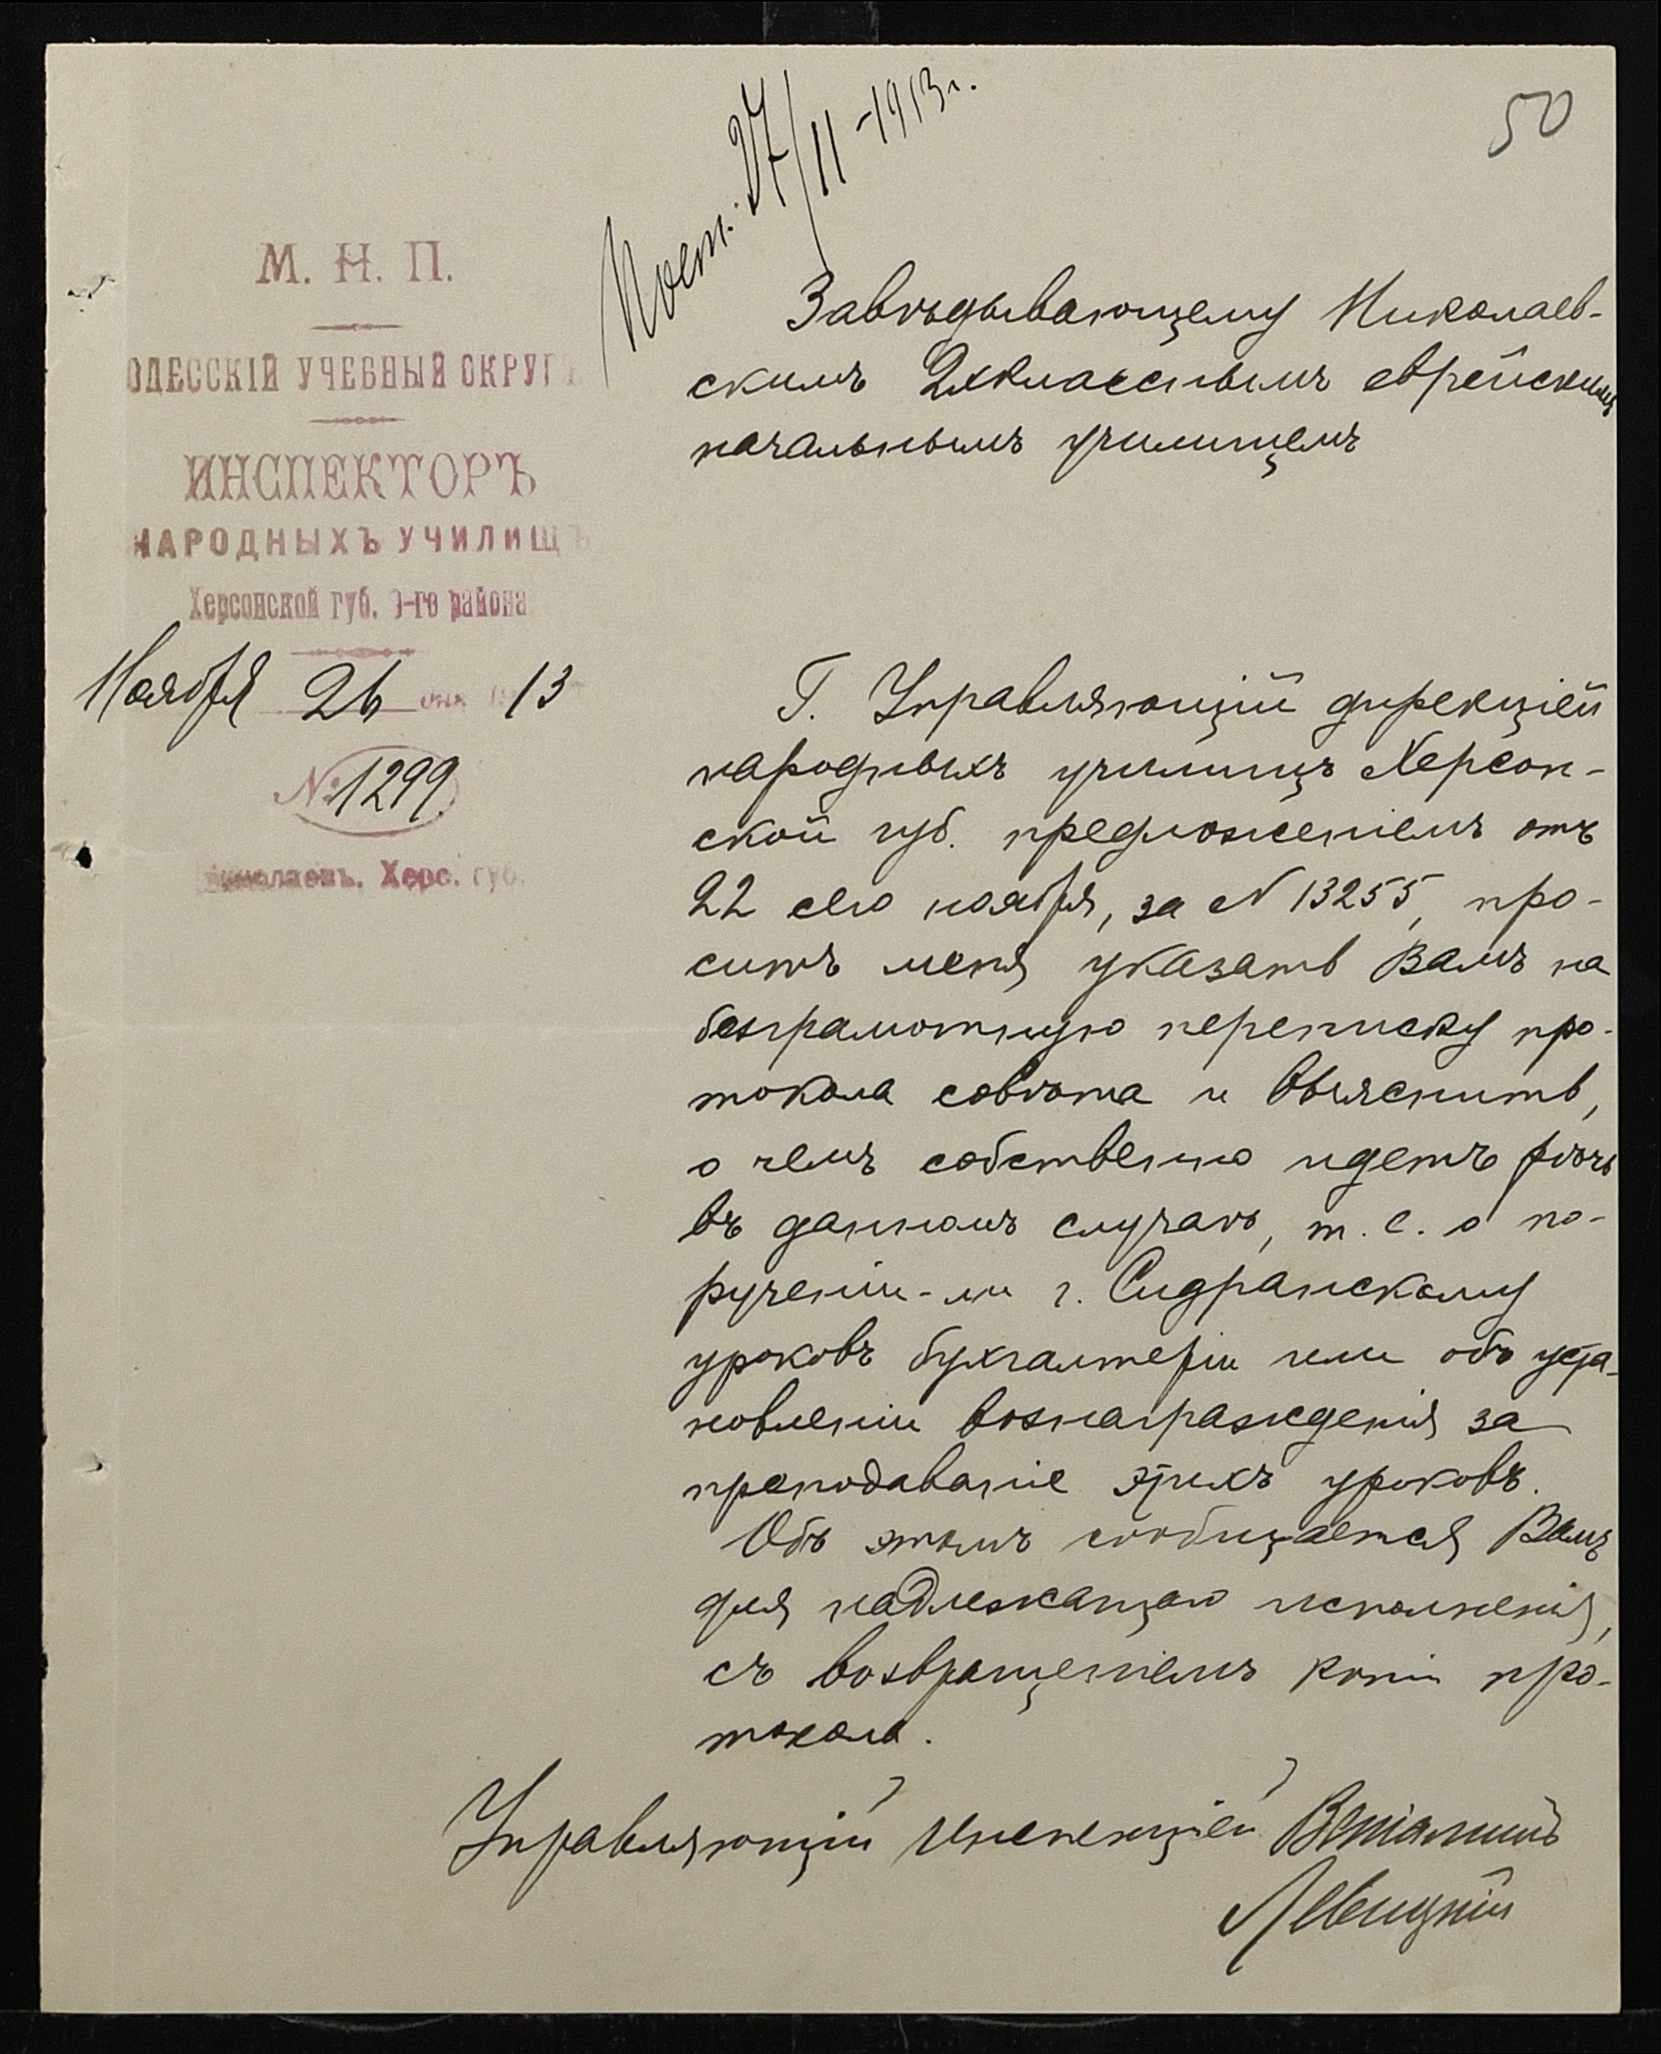 50
Пост. 27/11 -1913 г.
М. Н. П.
ОДЕССКІЙ УЧЕБНЫЙ ОКРУГ
ИНСПЕКТОРЪ
НАРОДНЫХЪ УЧИЛИЩЪ
Херсонской губ. -го района
Ноября 26 дня 13
№ 1299
Николаевъ. Херс. губ.
Завѣдывающему Николаев-
скимъ 2хкласснымъ еврейскимъ
начальнымъ училищемъ
Г. Управляющій дирекціей
народныхъ училищъ Херсон-
ской губ. предложеніемъ отъ
22 сего ноября, за № 13255, про-
ситъ меня указать Вамъ на
безграмотную переписку про-
токола совѣта и выяснить,
о чемъ собственно идетъ рѣчь
въ данномъ случаѣ, т. е. о по-
рученіи-ли г. Сидранскому
уроковъ бухгалтеріи или объ уста-
новленіи вознагражденія за
преподаваніе этихъ уроковъ.
Объ этомъ сообщается Вамъ
для надлежащаго исполненія,
съ возвращеніемъ копіи про-
токола.
Управляющій Инспекціей Веніаминъ
Левицкій